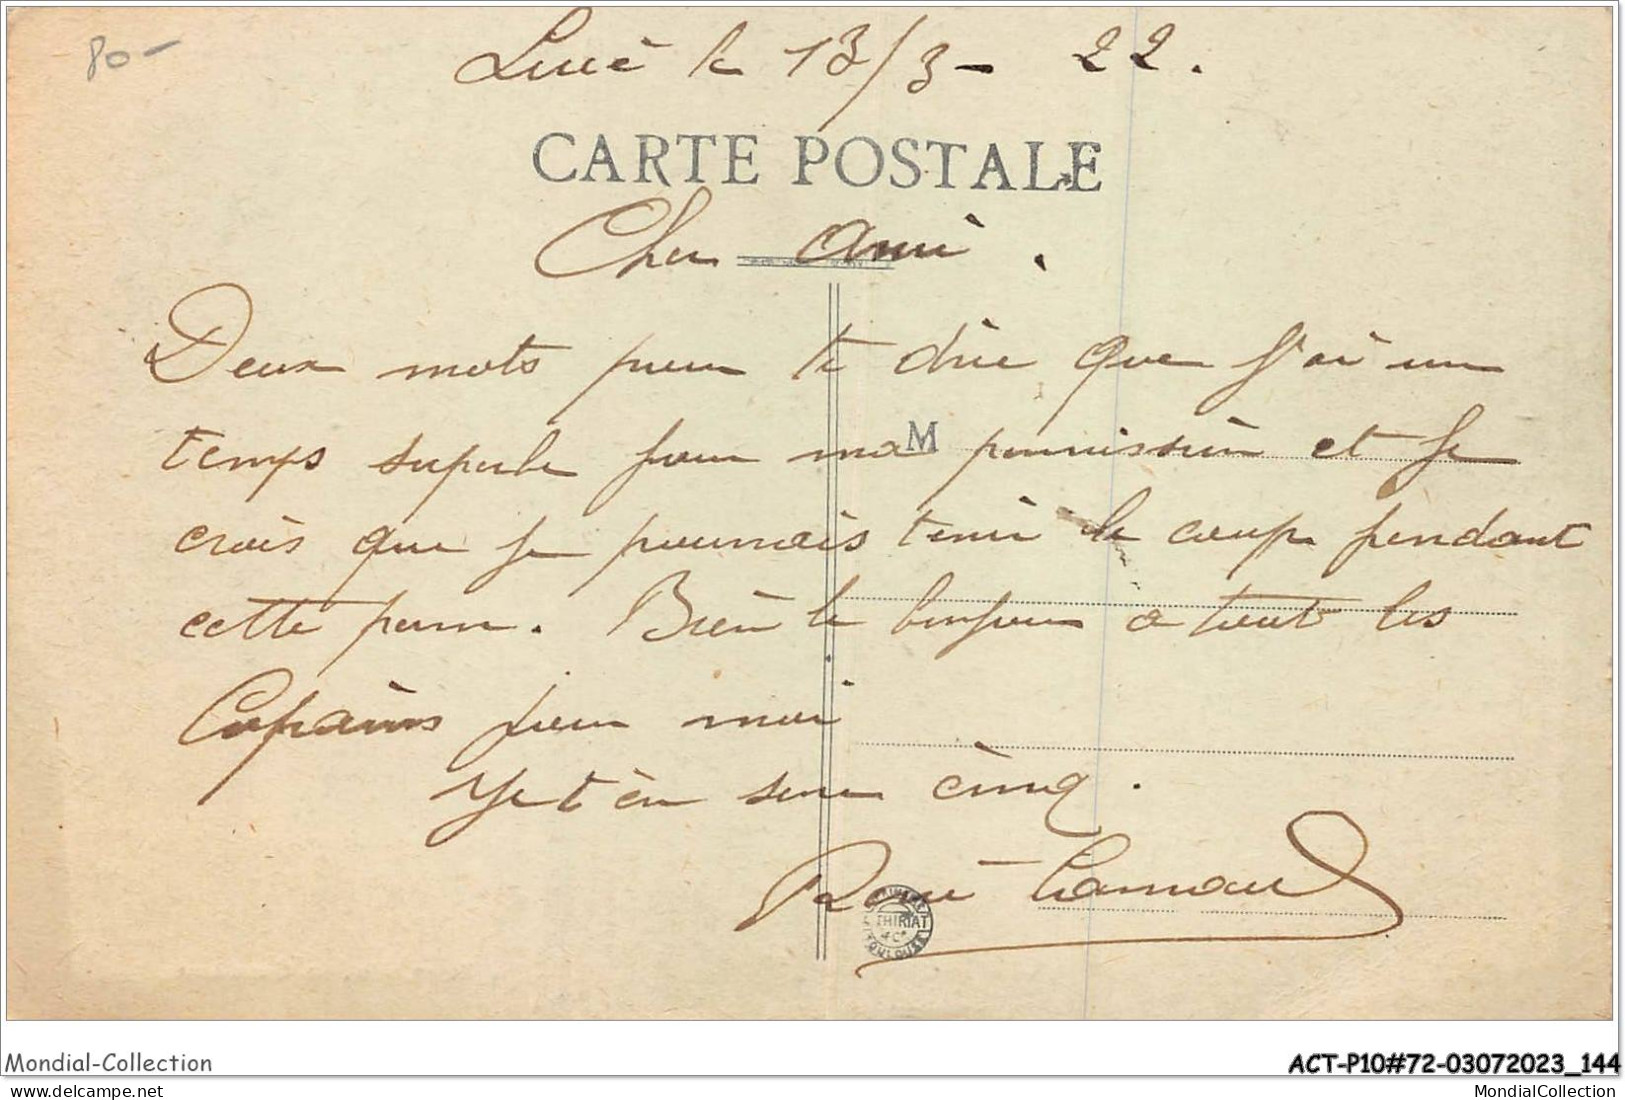 80-
Lucé le 13/3 - 22.
CARTE POSTALE
Cher Ami.
Deux mots pour te dire que j'ai un
temps superbe pour ma permission et je
M
crois que je pourrais tenir le coup pendant
cette perm. Bien le bonjour a tout les
Copains pour moi
Je t'en serre cinq.
René
THIRIAT
TOULOUSE
Mondial-Collection
ACT-P10#72-03072023_144
delcampe.net
MondialCollection